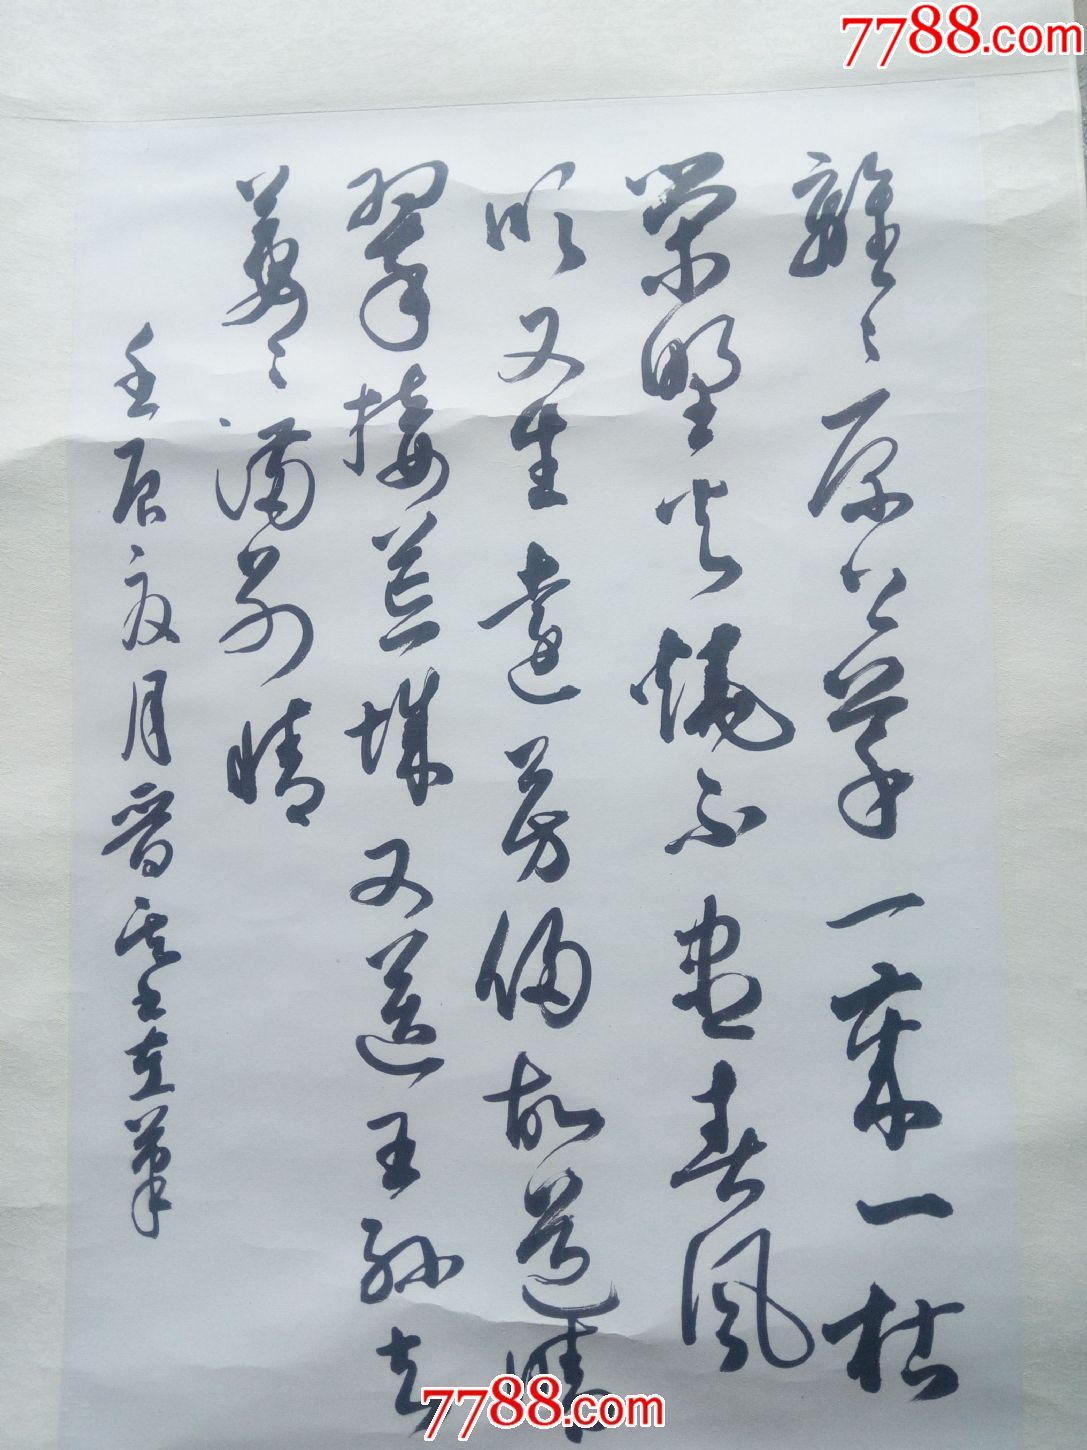 7788.com
離〻原上草一歲一枯
榮野火燒不盡春風
吹又生遠芳侵故道晴
翠接荒城又送王孫去
萋〻滿別情
壬辰夏月晋左筆
7788.com